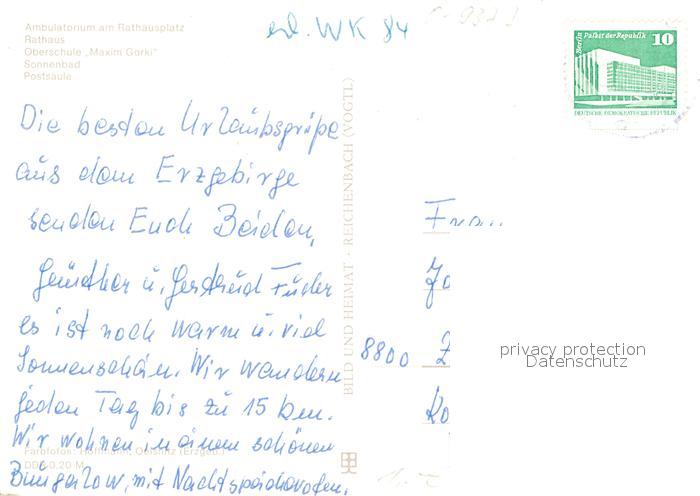 Ambulatorium am Rathausplatz
Rathaus
Oberschule „Maxim Gorki"
Sonnenbad
Postsäule
erl. WK 84
Berlin Palast der Republik 10
DEUTSCHE DEMOKRATISCHE REPUBLIK
Die besten Urlaubsgrüße
aus dem Erzgebirge
senden Euch Beiden,
Günther u. Gertrud
es ist noch warm u. viel
Sonnenschein. Wir wandern
jeden Tag bis zu 15 km.
Wir wohnen in einem schönen
Bungalow, mit Nachtspeicherofen.
Farbfotos: Hoffmann, Oelsnitz (Erzgeb.)
DDR 0,20 M
BILD UND HEIMAT · REICHENBACH (VOGTL)
Frau
8800 Z
privacy protection
Datenschutz